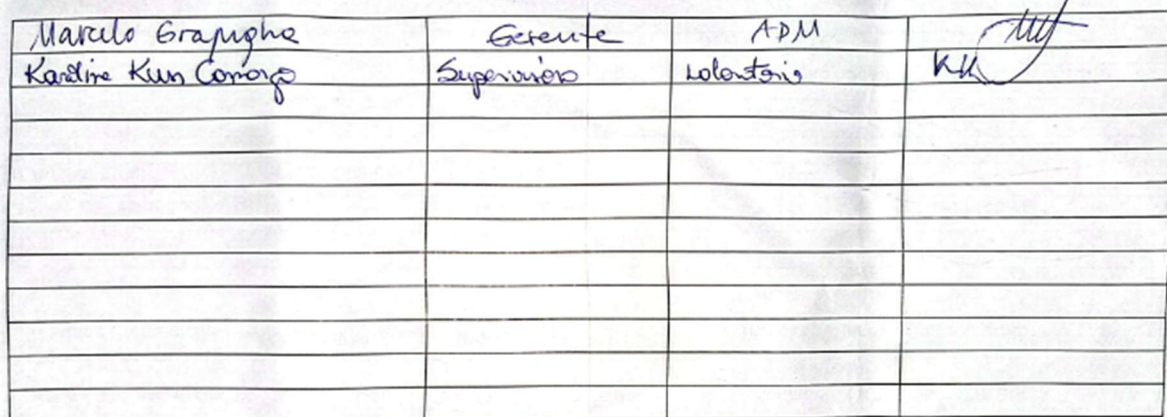 Marcelo Grapiglia Gerente ADM
Karoline Kun Camargo Supervisora Laboratório KK